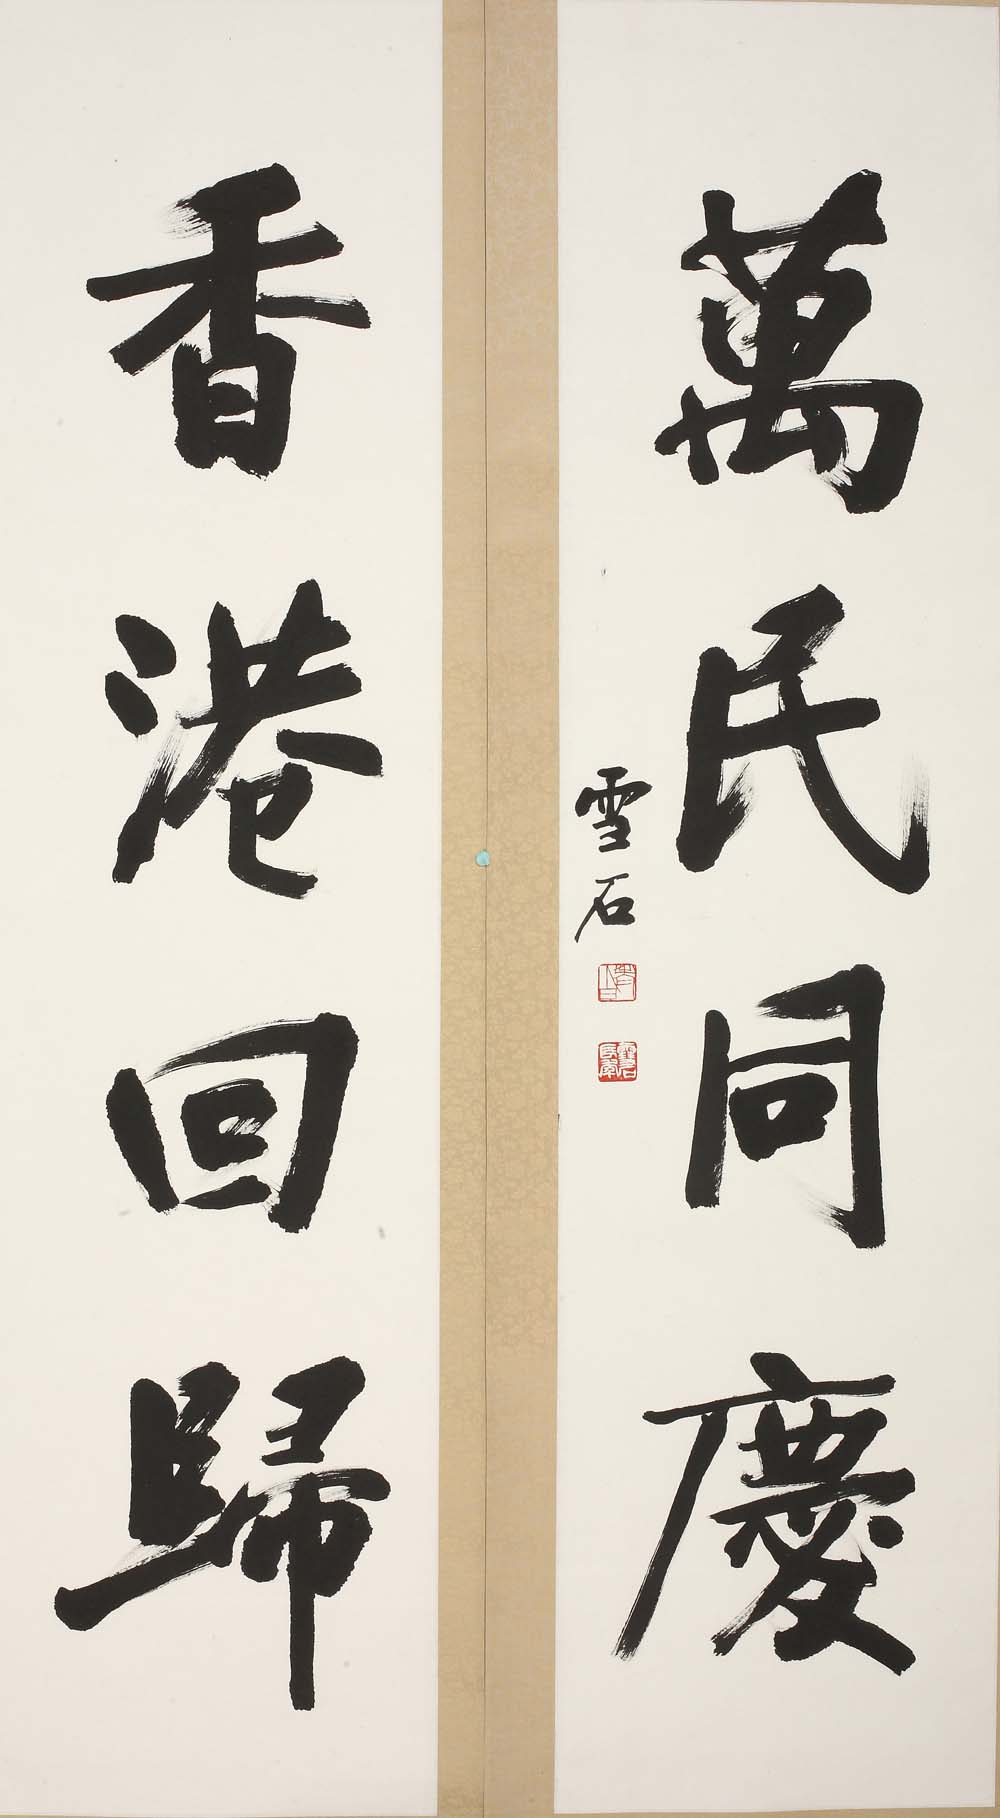 萬民同慶
雪石
香港回歸